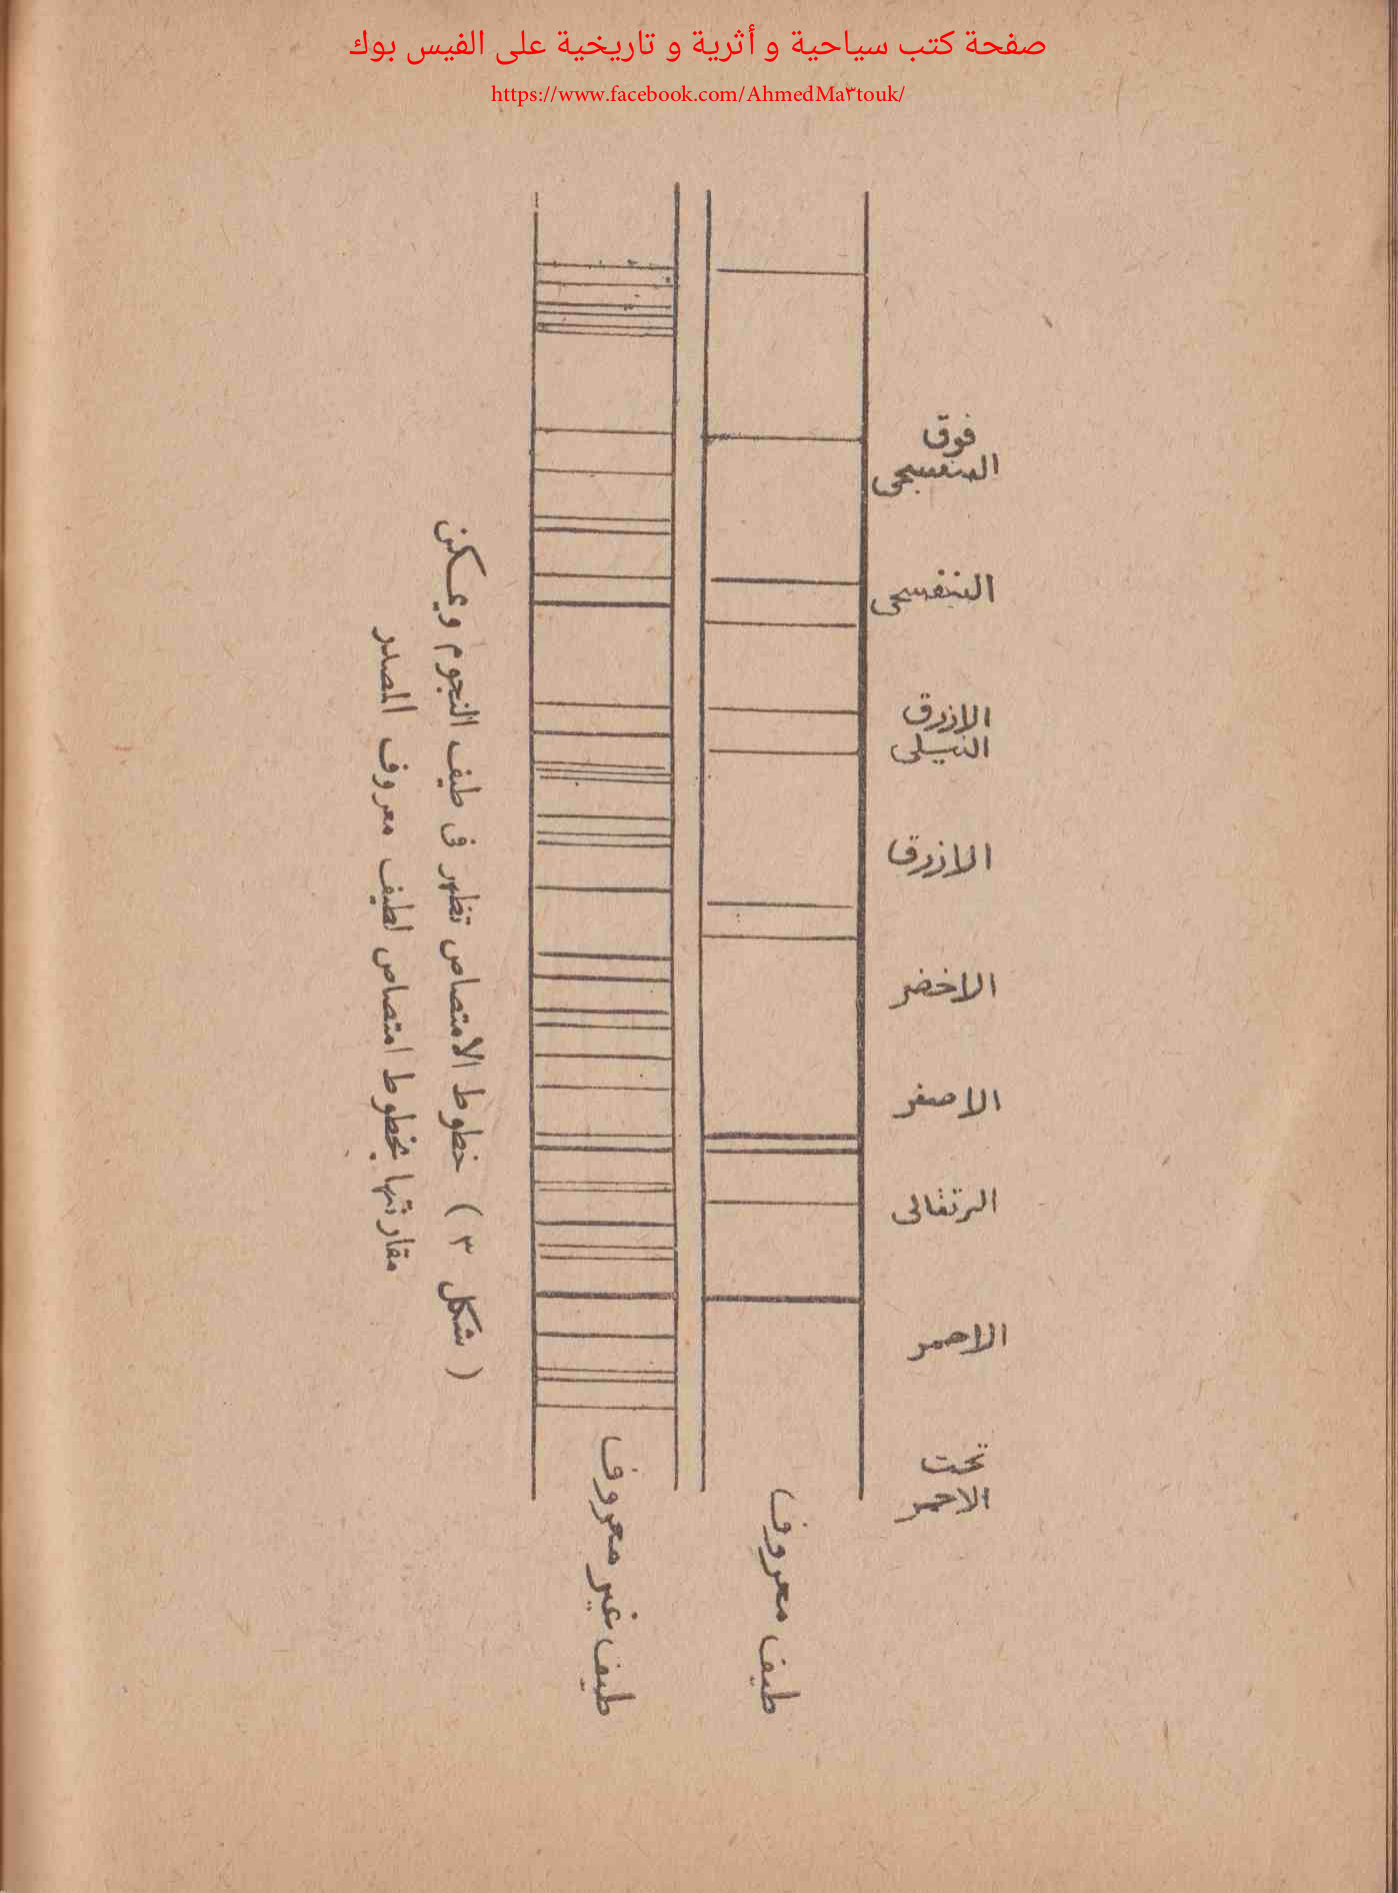 صفحة كتب سياحية و أثرية و تاريخية على الفيس بوك
https://www.facebook.com/AhmedMa٣touk/
فوق
البنفسجى
البنفسجى
الازرق
النيلى
الازرق
الاخضر
الاصفر
البرتقالى
الاحمر
تحت
الاحمر
طيف معروف
طيف غير معروف
( شكل ٣ ) خطوط الامتصاص تظهر فى طيف النجوم ويمكن
مقارنتها بخطوط امتصاص لطيف معروف المصدر